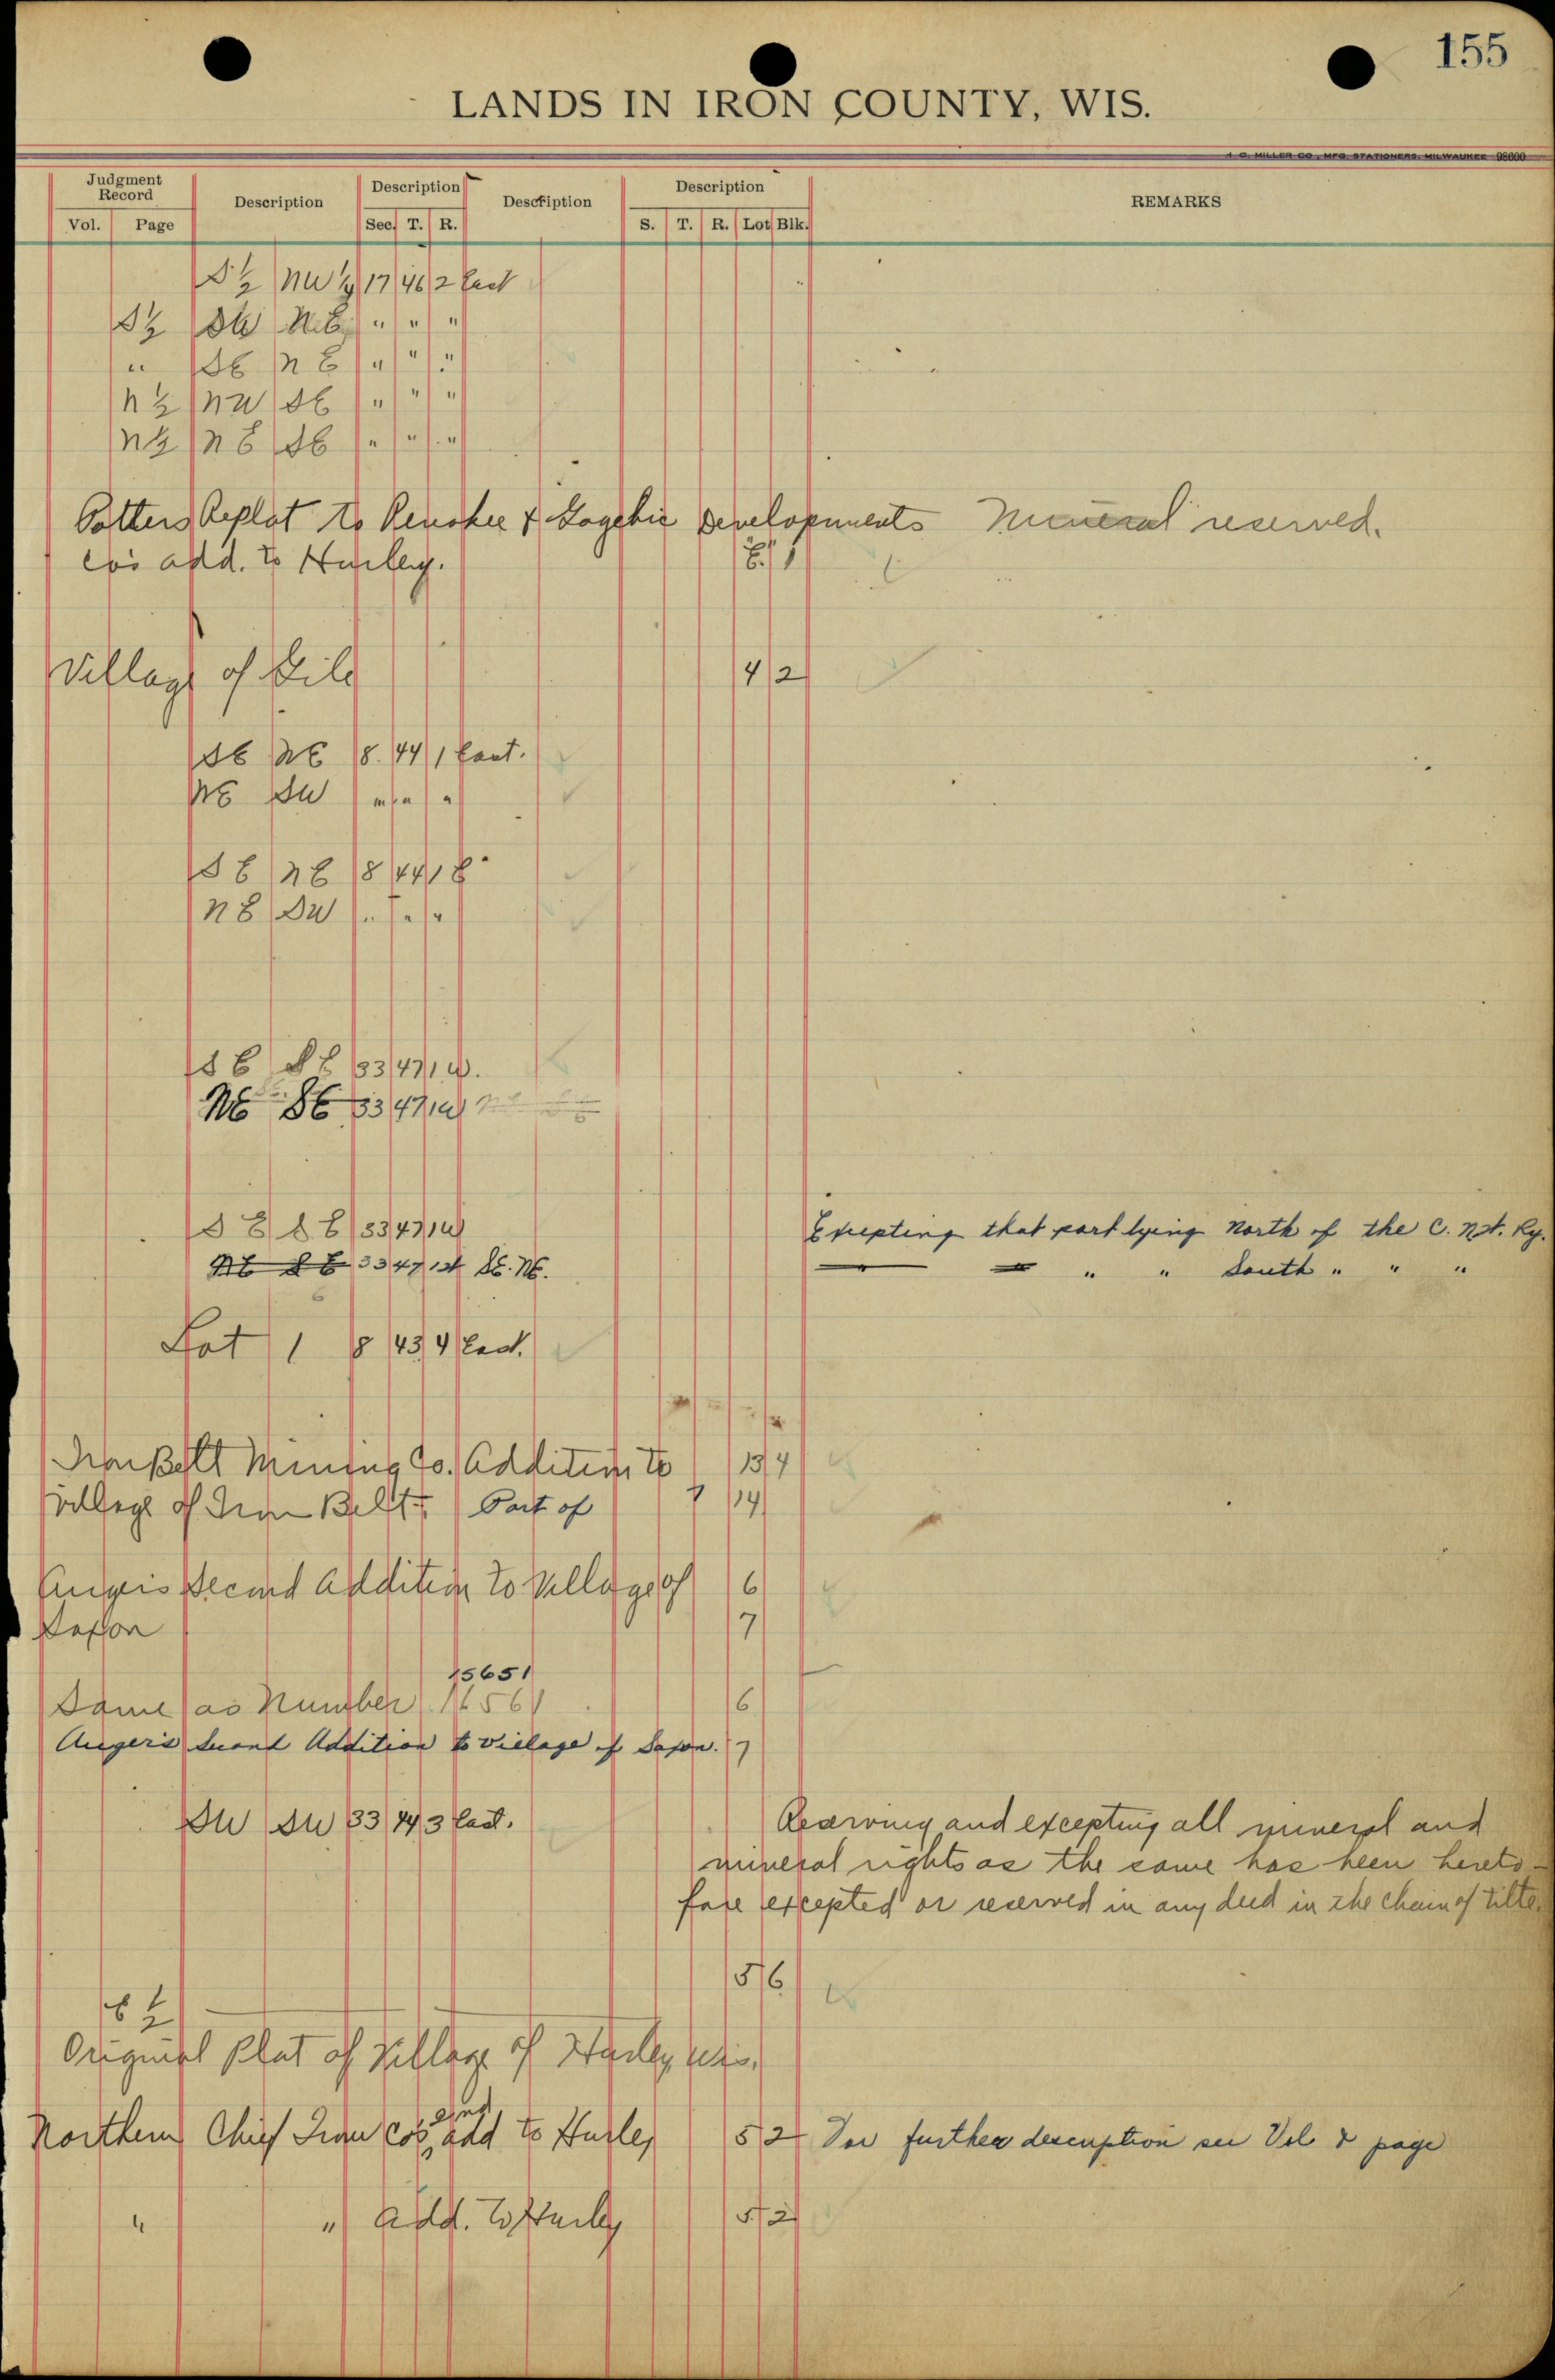 155
LANDS IN IRON COUNTY, WIS.
MILLER CO., MFG. STATIONERS, MILWAUKEE 98600
Judgment Record Description Description Description Description REMARKS
Vol. Page Sec. T. R. S. T. R. Lot Blk.
S ½ NW ¼ 17 46 2 East
S½ SW NE " " "
" SE NE " " "
N½ NW SE " " "
N½ NE SE " " "
Potters Replat to Penokee & Gogebic Developments Mineral reserved.
Co's add. to Hurley. 8. 1
Village of Gile 4 2
SE NE 8. 44 1 East.
NE SW " " "
SE NE 8 44 1 E
NE SW " " "
SE SE 33 47 1 W.
NE SE 33 47 1 W
SE SE 33 47 1 W Excepting that part lying North of the C. N.W. Ry.
NE SE 33 47 1 W SE. NE. " " South " " "
Lot 1 8 43 4 East.
Iron Belt Mining Co. Addition to 13 4
Village of Iron Belt. Part of 14
Angers Second Addition to Village of 6
Saxon 7
15651
Same as Number 6
Auger's Second Addition to Village of Saxon. 7
SW SW 33 44 3 East. Reserving and excepting all mineral and
mineral rights as the same has been hereto-
fore excepted or reserved in any deed in the chain of title.
15 6
E ½
Original Plat of Village of Hurley, Wis.
2nd
Northern Chief Iron Co's add to Hurley 5 2 For further description see Vol & page
" " Add. to Hurley 5 2